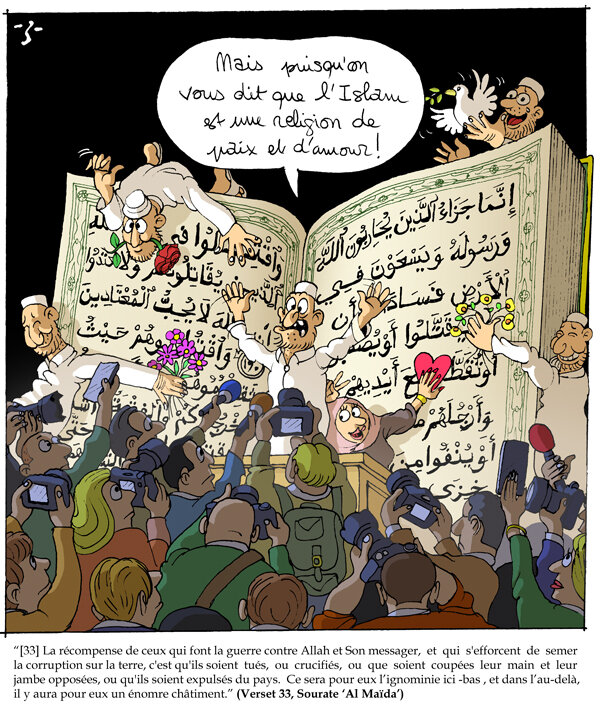 -3-
Mais puisqu'on
vous dit que l'Islam
est une religion de
paix et d'amour !
إِنَّمَا جَزَاءُ الَّذِينَ يُحَارِبُونَ اللَّهَ
وَرَسُولَهُ وَيَسْعَوْنَ فِي
الْأَرْضِ فَسَادًا أَن
يُقَتَّلُوا أَوْ
أَوْ تُقَطَّعَ أَيْدِيهِمْ
وَأَرْجُلُهُم
أَوْ يُنفَوْا مِن
خِزْيٌ
فِي
الَّذِينَ وَلَا تَعْتَدُوا
لَا يُحِبُّ الْمُعْتَدِينَ
حَيْثُ
“[33] La récompense de ceux qui font la guerre contre Allah et Son messager, et qui s'efforcent de semer
la corruption sur la terre, c'est qu'ils soient tués, ou crucifiés, ou que soient coupées leur main et leur
jambe opposées, ou qu'ils soient expulsés du pays. Ce sera pour eux l'ignominie ici -bas , et dans l'au-delà,
il y aura pour eux un énomre châtiment.” (Verset 33, Sourate ‘Al Maïda’)